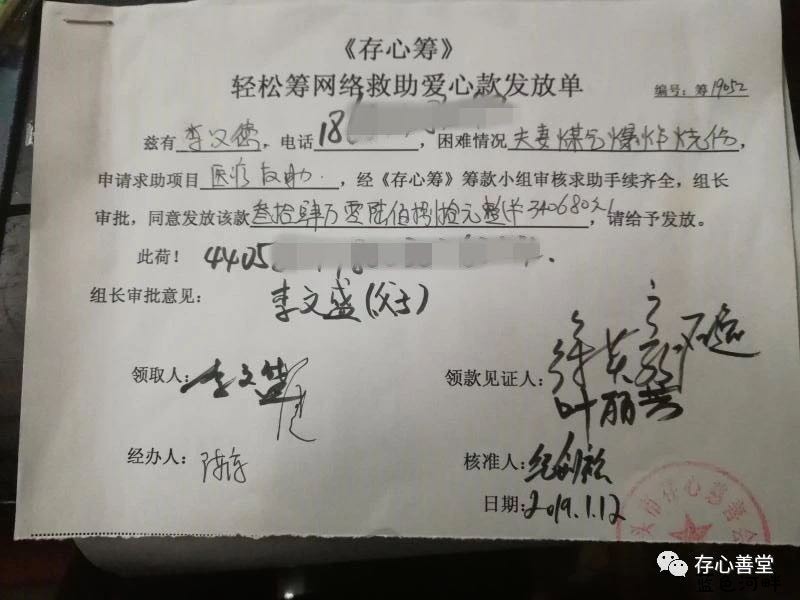 《存心筹》
轻松筹网络救助爱心款发放单
编号：筹19052
兹有李文德，电话18，困难情况夫妻煤气爆炸烧伤，
申请求助项目医疗救助，经《存心筹》筹款小组审核求助手续齐全，组长
审批，同意发放该款叁拾肆万零陆佰捌拾元整（¥340680元），请给予发放。
此荷！4405
组长审批意见：李文盛（父子）
领取人：李文盛
领款见证人：
叶丽芸
经办人：
核准人：
日期：2019.1.12
头市存心慈善会
存心善堂
蓝色河畔